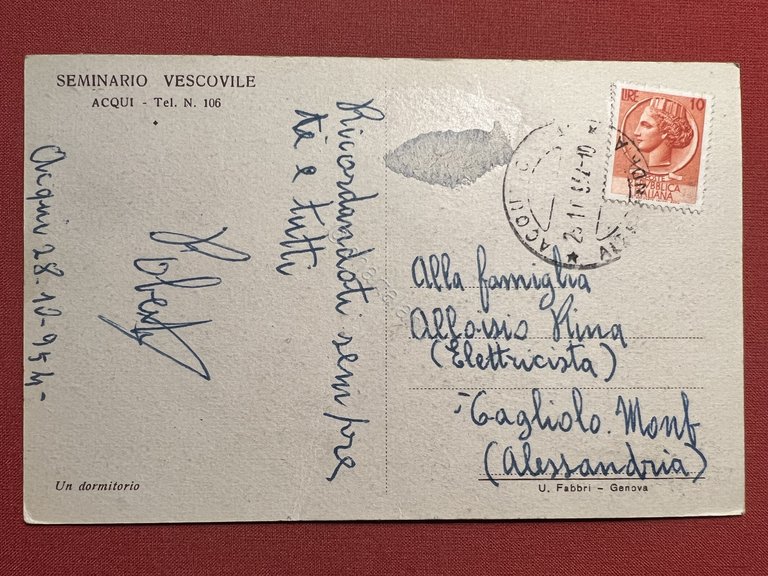 SEMINARIO VESCOVILE
ACQUI - Tel. N. 106
Acqui 28-10-954-
Ricordandoti sempre
te e tutti
Un dormitorio
LIRE 10
POSTE
REPUBBLICA
ITALIANA
ACQUI
ALESSANDRIA
Alla famiglia
Alloisio Nina
(Elettricista)
Tagliolo Monf
(Alessandria)
U. Fabbri - Genova